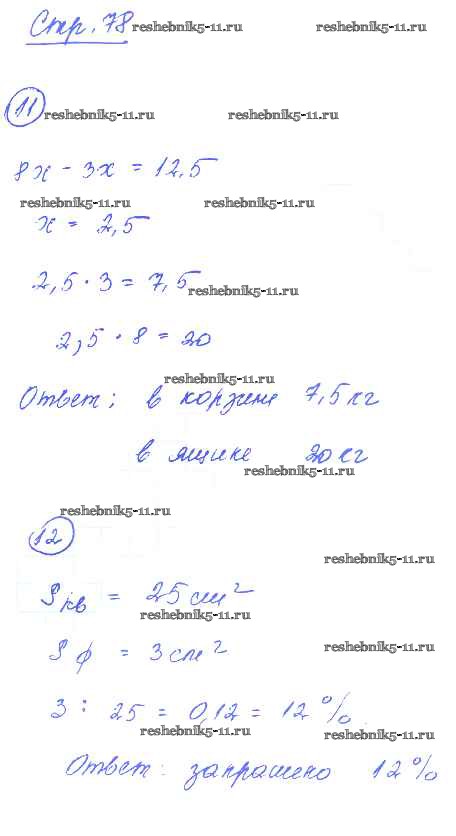 Стр. 78 reshebnik5-11.ru reshebnik5-11.ru
11 reshebnik5-11.ru reshebnik5-11.ru
8x - 3x = 12,5
reshebnik5-11.ru reshebnik5-11.ru
x = 2,5
2,5 · 3 = 7,5 reshebnik5-11.ru
2,5 · 8 = 20
reshebnik5-11.ru
Ответ: в корзине 7,5 кг
в ящике 20 кг
reshebnik5-11.ru
reshebnik5-11.ru
12
reshebnik5-11.ru
Sкв = 25 см²
reshebnik5-11.ru
Sф = 3 см² reshebnik5-11.ru
3 : 25 = 0,12 = 12 %.
reshebnik5-11.ru reshebnik5-11.ru
Ответ: закрашено 12 %